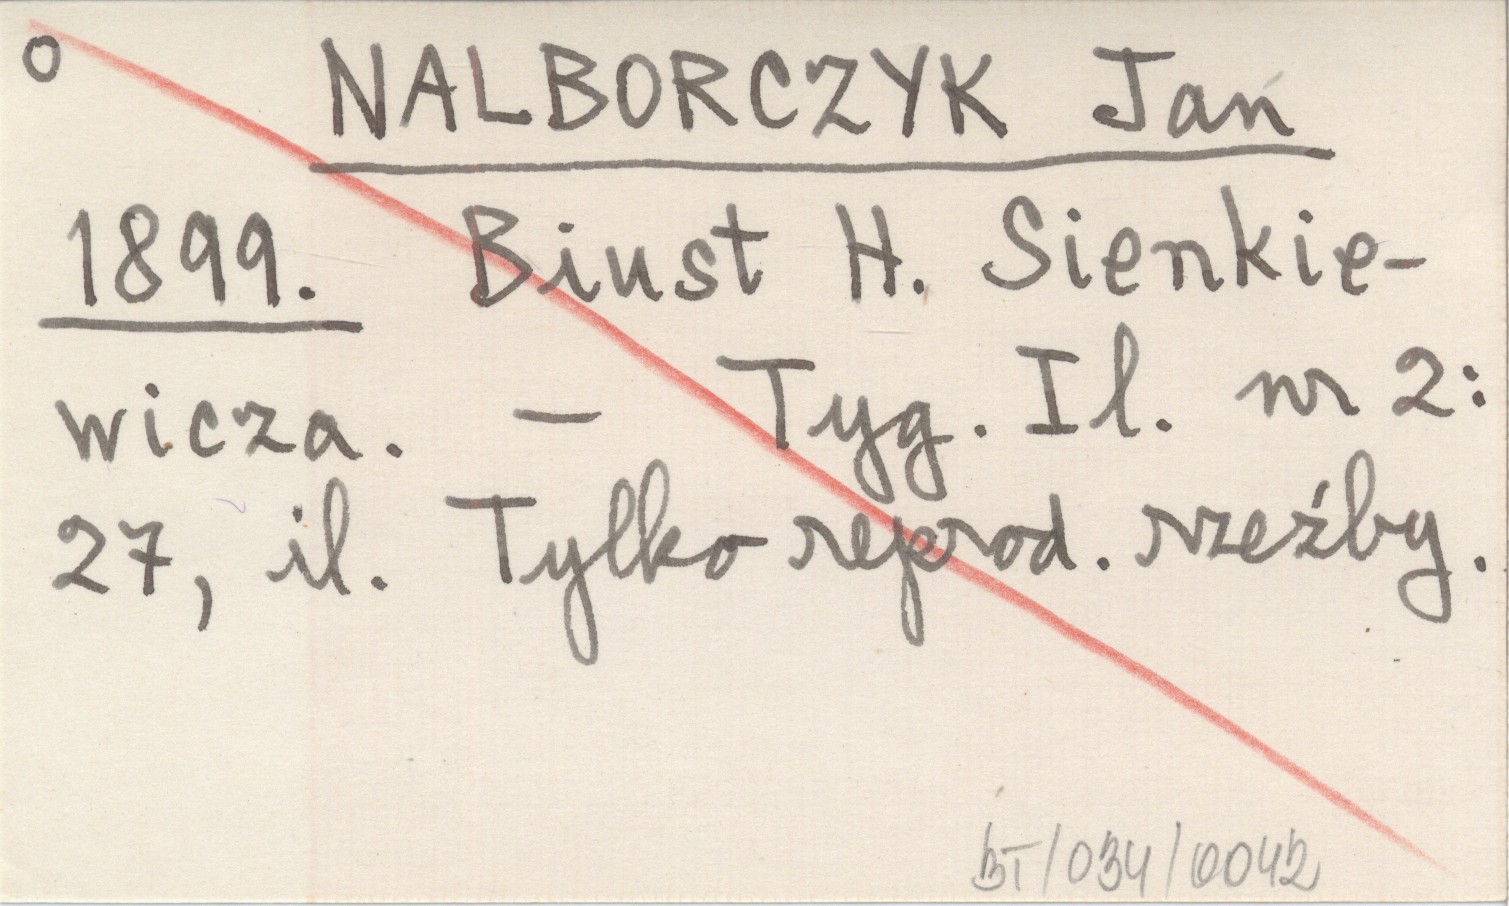 o NALBORCZYK Jan
1899. Biust H. Sienkie-
wicza. – Tyg. Il. nr 2:
27, il. Tylko reprod. rzeźby.
BT/034/0042